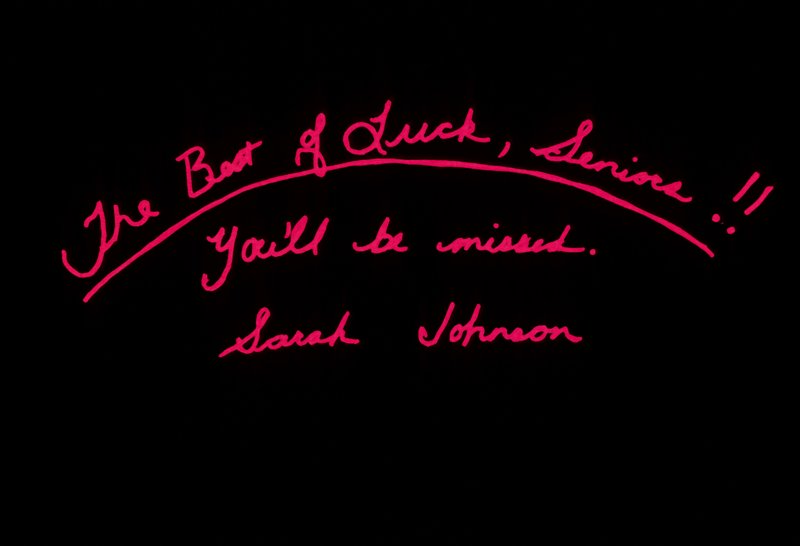 The Best of Luck, Seniors!!
You'll be missed.
Sarah Johnson